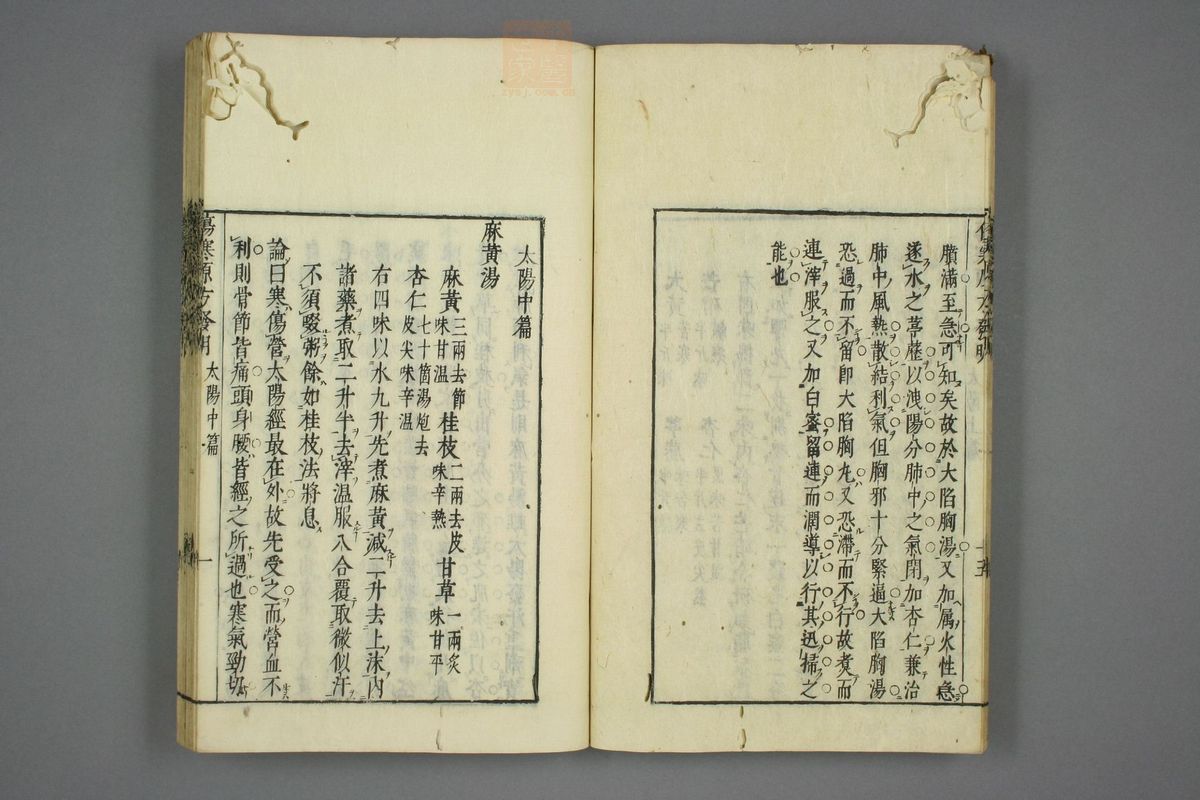 膹滿至急可知矣故於大陷胸湯又加属火性急
遂水之葶藶以洩陽分肺中之氣閉加杏仁兼治
肺中風熱散結利氣但胸邪十分緊逼大陷胸湯
恐過而不留卽大陷胸丸又恐滯而不行故煑而
連滓服之又加白蜜留連而潤導以行其迅掃之
能也
太陽中篇
麻黃湯
麻黃三兩去節味甘温 桂枝二兩去皮味辛熱 甘草一兩炙味甘平
杏仁七十箇湯炮去皮尖味辛温
右四味以水九升先煮麻黃減二升去上沫内
諸藥煮取二升半去滓温服八合覆取微似汗
不須啜粥餘如桂枝法將息
論曰寒傷營太陽經最在外故先受之而營血不
利則骨節皆痛頭身腰皆經之所過也寒氣勁切
傷寒原方發明 太陽中篇 一
zysj.com.cn